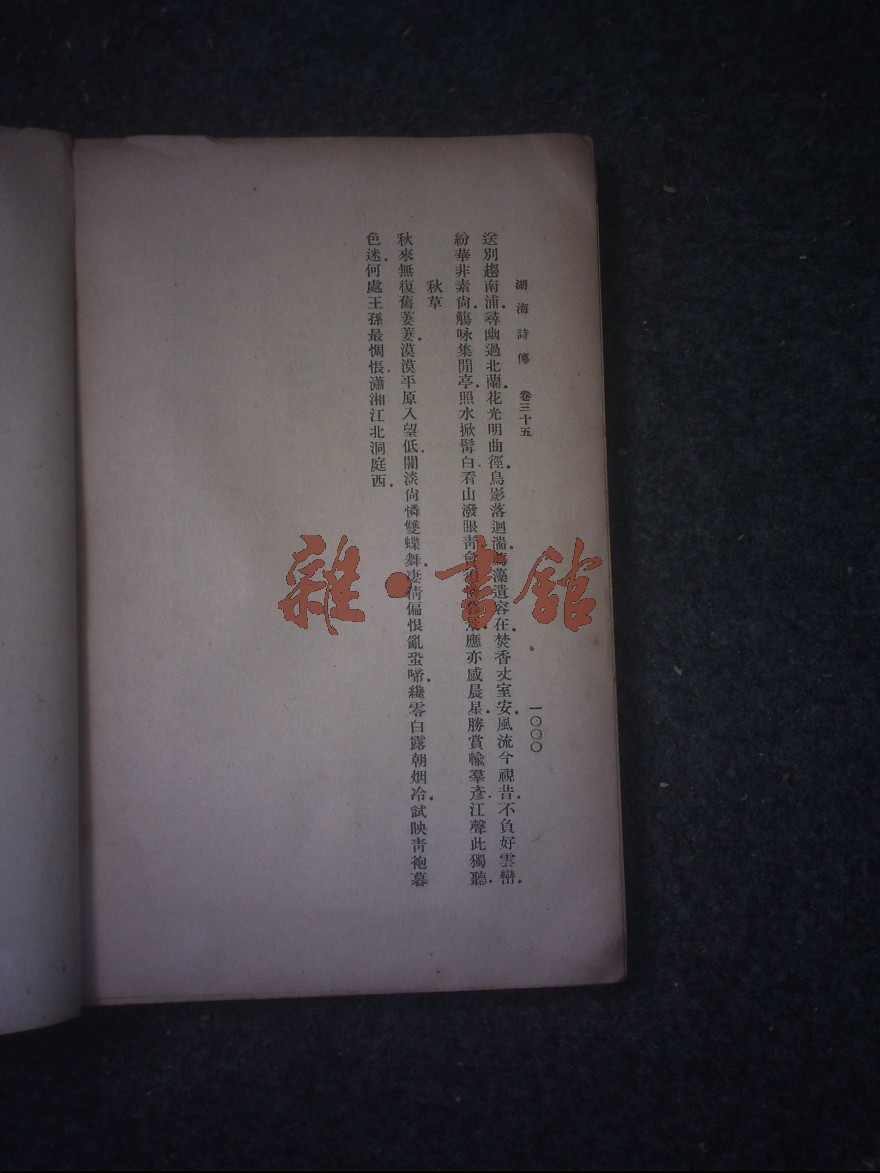 湖海詩傳 卷三十五
一〇〇〇
送別趨南浦．尋幽過北蘭．花光明曲徑．鳥影落迴湍．藻遺容在．焚香丈室安．風流今視昔．不負好雲巒．
紛華非素尙．觴咏集閒亭．照水掀髯白．看山潑眼靑．應亦感晨星．勝賞輸羣彥．江聲此獨聽．
秋草
秋來無復舊萋萋．漠漠平原入望低．闇淡尙憐雙蝶舞．凄淸偏恨亂蛩啼．纔零白露朝烟冷．試映靑袍暮
色迷．何處王孫最惆悵．瀟湘江北洞庭西．
雜·書館